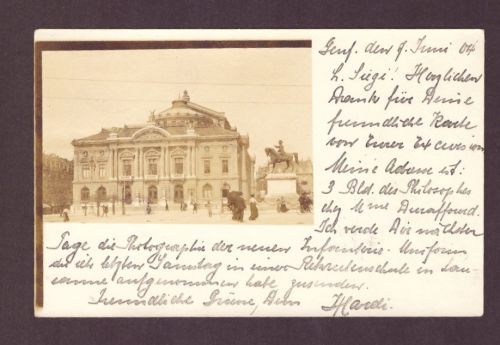 Genf. den 9. Juni 04
L. Siegi! Herzlichen
Dank für Deine
freundliche Karte
von Eurer Excursion
Meine Adresse ist:
3 Bld. des Philosophes
chez Mme Duraffourd.
Ich werde Dir nächster
Tage die Photographie der neuen Infanterie-Uniform
die ich letzten Samstag in einer Rekrutenschule in Lau-
sanne aufgenommen habe zusenden.
Freundliche Grüsse, Dein Hardi.